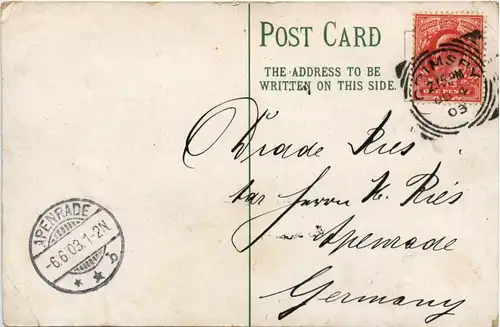 POST CARD
THE ADDRESS TO BE
WRITTEN ON THIS SIDE.
ONE PENNY
GRIMSBY
03
Ries
Herrn H. Ries
Apenrade
Germany
APENRADE
-6.6.03.1-2N
* * b